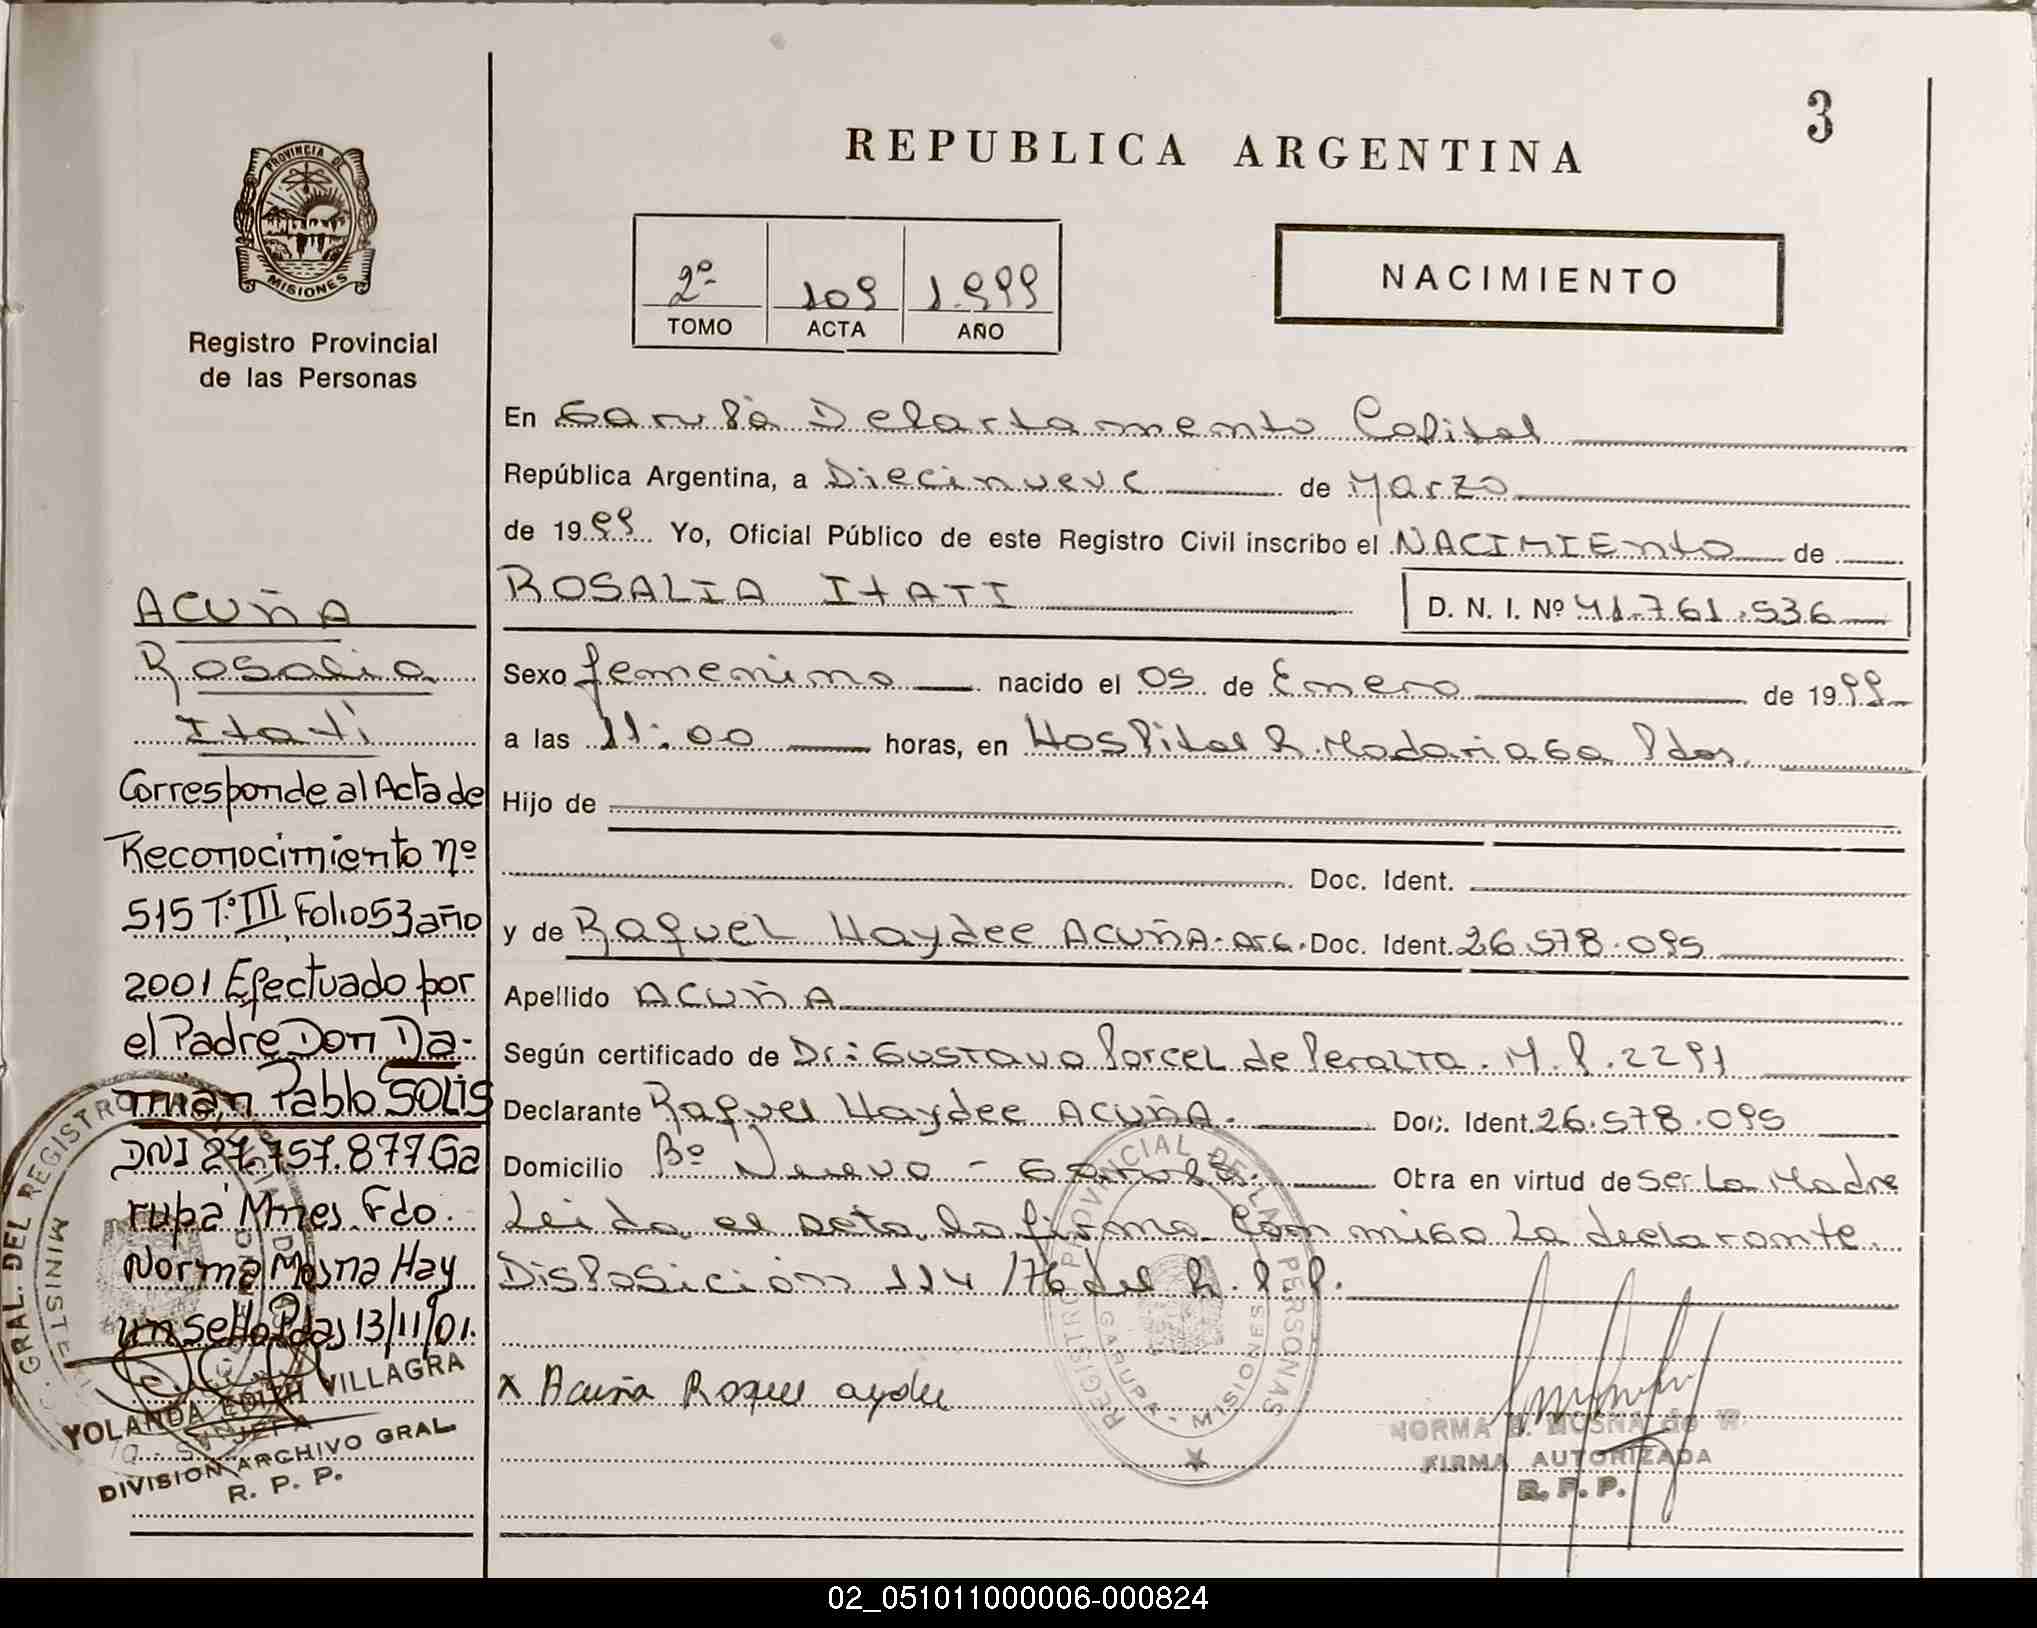 3
REPUBLICA ARGENTINA
PROVINCIA DE
MISIONES
Registro Provincial
de las Personas
2º 109 1.999
TOMO ACTA AÑO
NACIMIENTO
En Garupá Departamento Capital
República Argentina, a Diecinueve de Marzo
de 1999 Yo, Oficial Público de este Registro Civil inscribo el NACIMIENTO de
ROSALIA ITATI D. N. I. Nº 41.761.536
Sexo femenino nacido el 05 de Enero de 1999
a las 11:00 horas, en Hospital R. Madariaga Pdas.
Hijo de
Doc. Ident.
y de Raquel Haydee ACUÑA-arg. Doc. Ident. 26.578.095
Apellido ACUÑA
Según certificado de Dr.: Gustavo Porcel de Peralta. M.P. 2291
Declarante Raquel Haydee ACUÑA. Doc. Ident. 26.578.095
Domicilio Bº Nuevo - Garupá. Obra en virtud de Ser La Madre
Leida el acta la firma Conmigo La declarante.
Disposición 114/76 del R.P.P.
x Acuña Raquel aydee
REGISTRO PROVINCIAL DE LAS PERSONAS
GARUPA - MISIONES
NORMA B. MOSNA de W
FIRMA AUTORIZADA
R. P. P.
ACUÑA
Rosalia
Itatí
Corresponde al Acta de
Reconocimiento nº
515 Tº III Folio 53 año
2001 Efectuado por
el Padre Don Da-
mián Pablo SOLIS
DNI 27.757.877 Ga
rupá Mnes. Fdo.
Norma Mosna Hay
un sello Pdas 13/11/01.
GRAL. DEL REGISTRO
YOLANDA EDITH VILLAGRA
DIVISION ARCHIVO GRAL.
R. P. P.
02_051011000006-000824